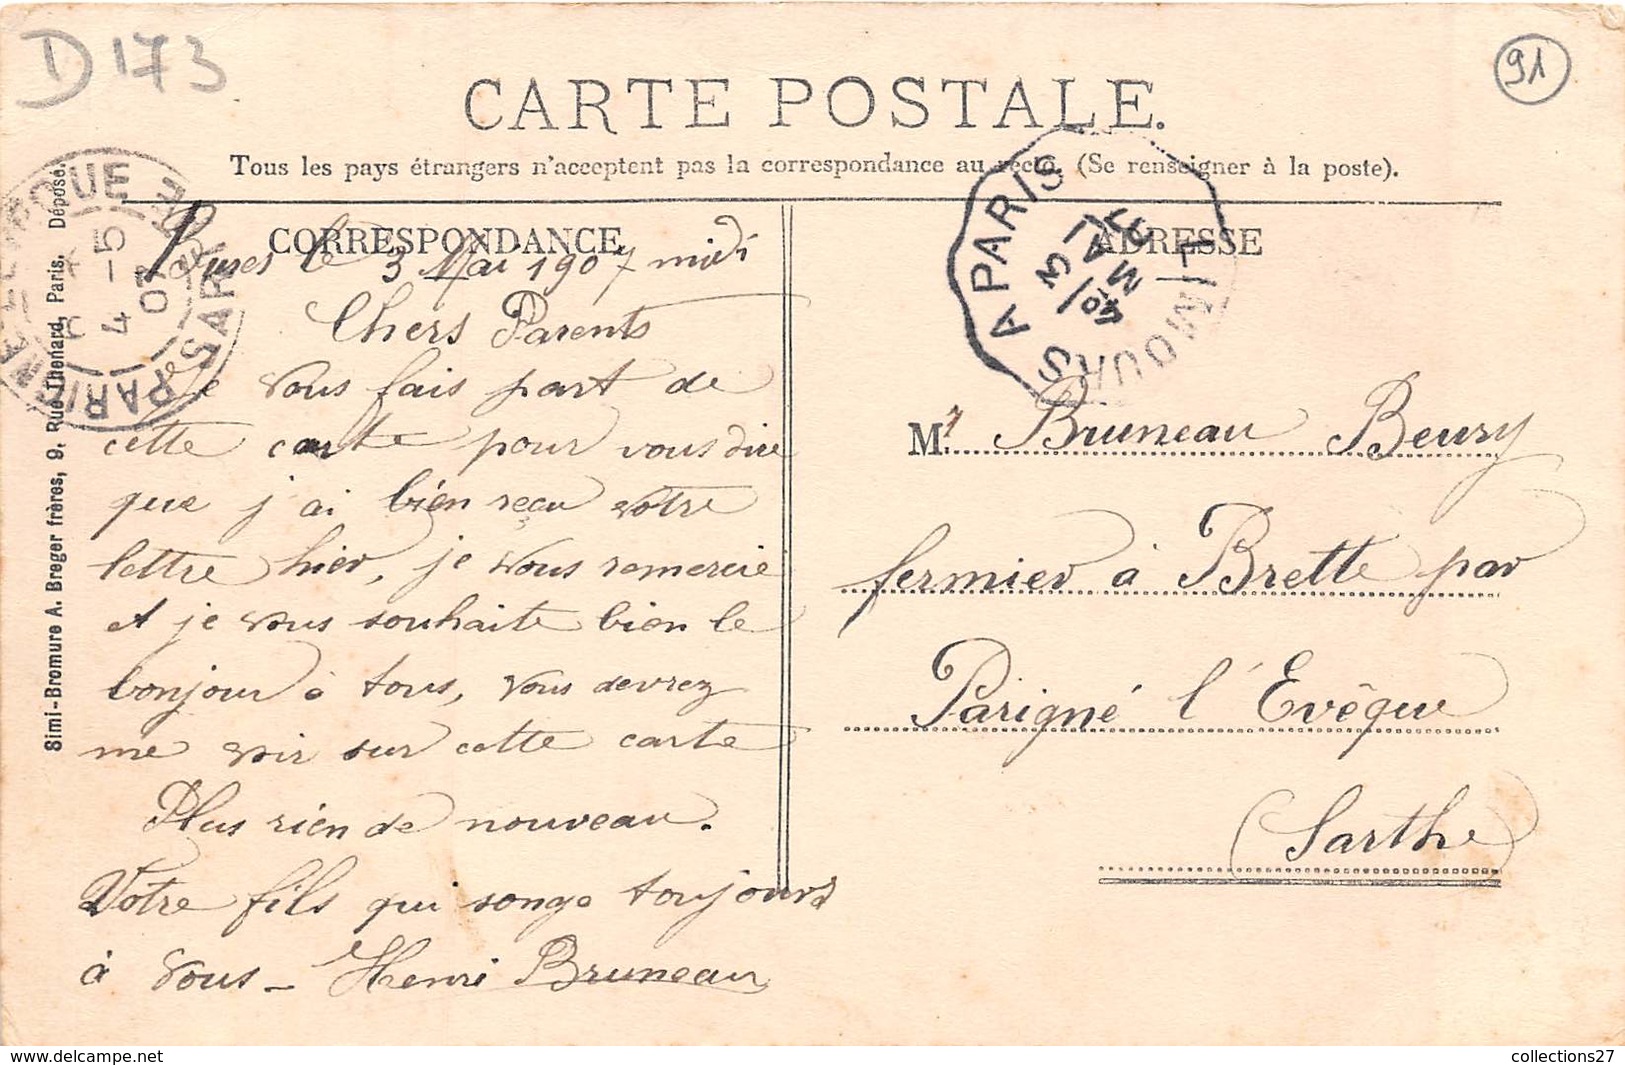 D173
91
CARTE POSTALE.
Tous les pays étrangers n'acceptent pas la correspondance au recto. (Se renseigner à la poste).
CORRESPONDANCE
Bures le 3 Mai 1907 midi
Chers Parents
Je vous fais part de
cette carte pour vous dire
que j'ai bien reçu votre
lettre hier, je vous remercie
et je vous souhaite bien le
bonjour à tous, vous devrez
me voir sur cette carte
Plus rien de nouveau.
Votre fils qui songe toujours
à vous - Henri Bruneau
ADRESSE
Mr Bruneau Beury
fermier à Brette par
Parigné l'Evêque
(Sarthe)
LIMOURS A PARIS
3
MAI
07
PARIGNE-L'EVEQUE
SARTHE
4-5
07
Simi-Bromure A. Breger frères, 9, Rue Thenard, Paris. Déposé.
collections27